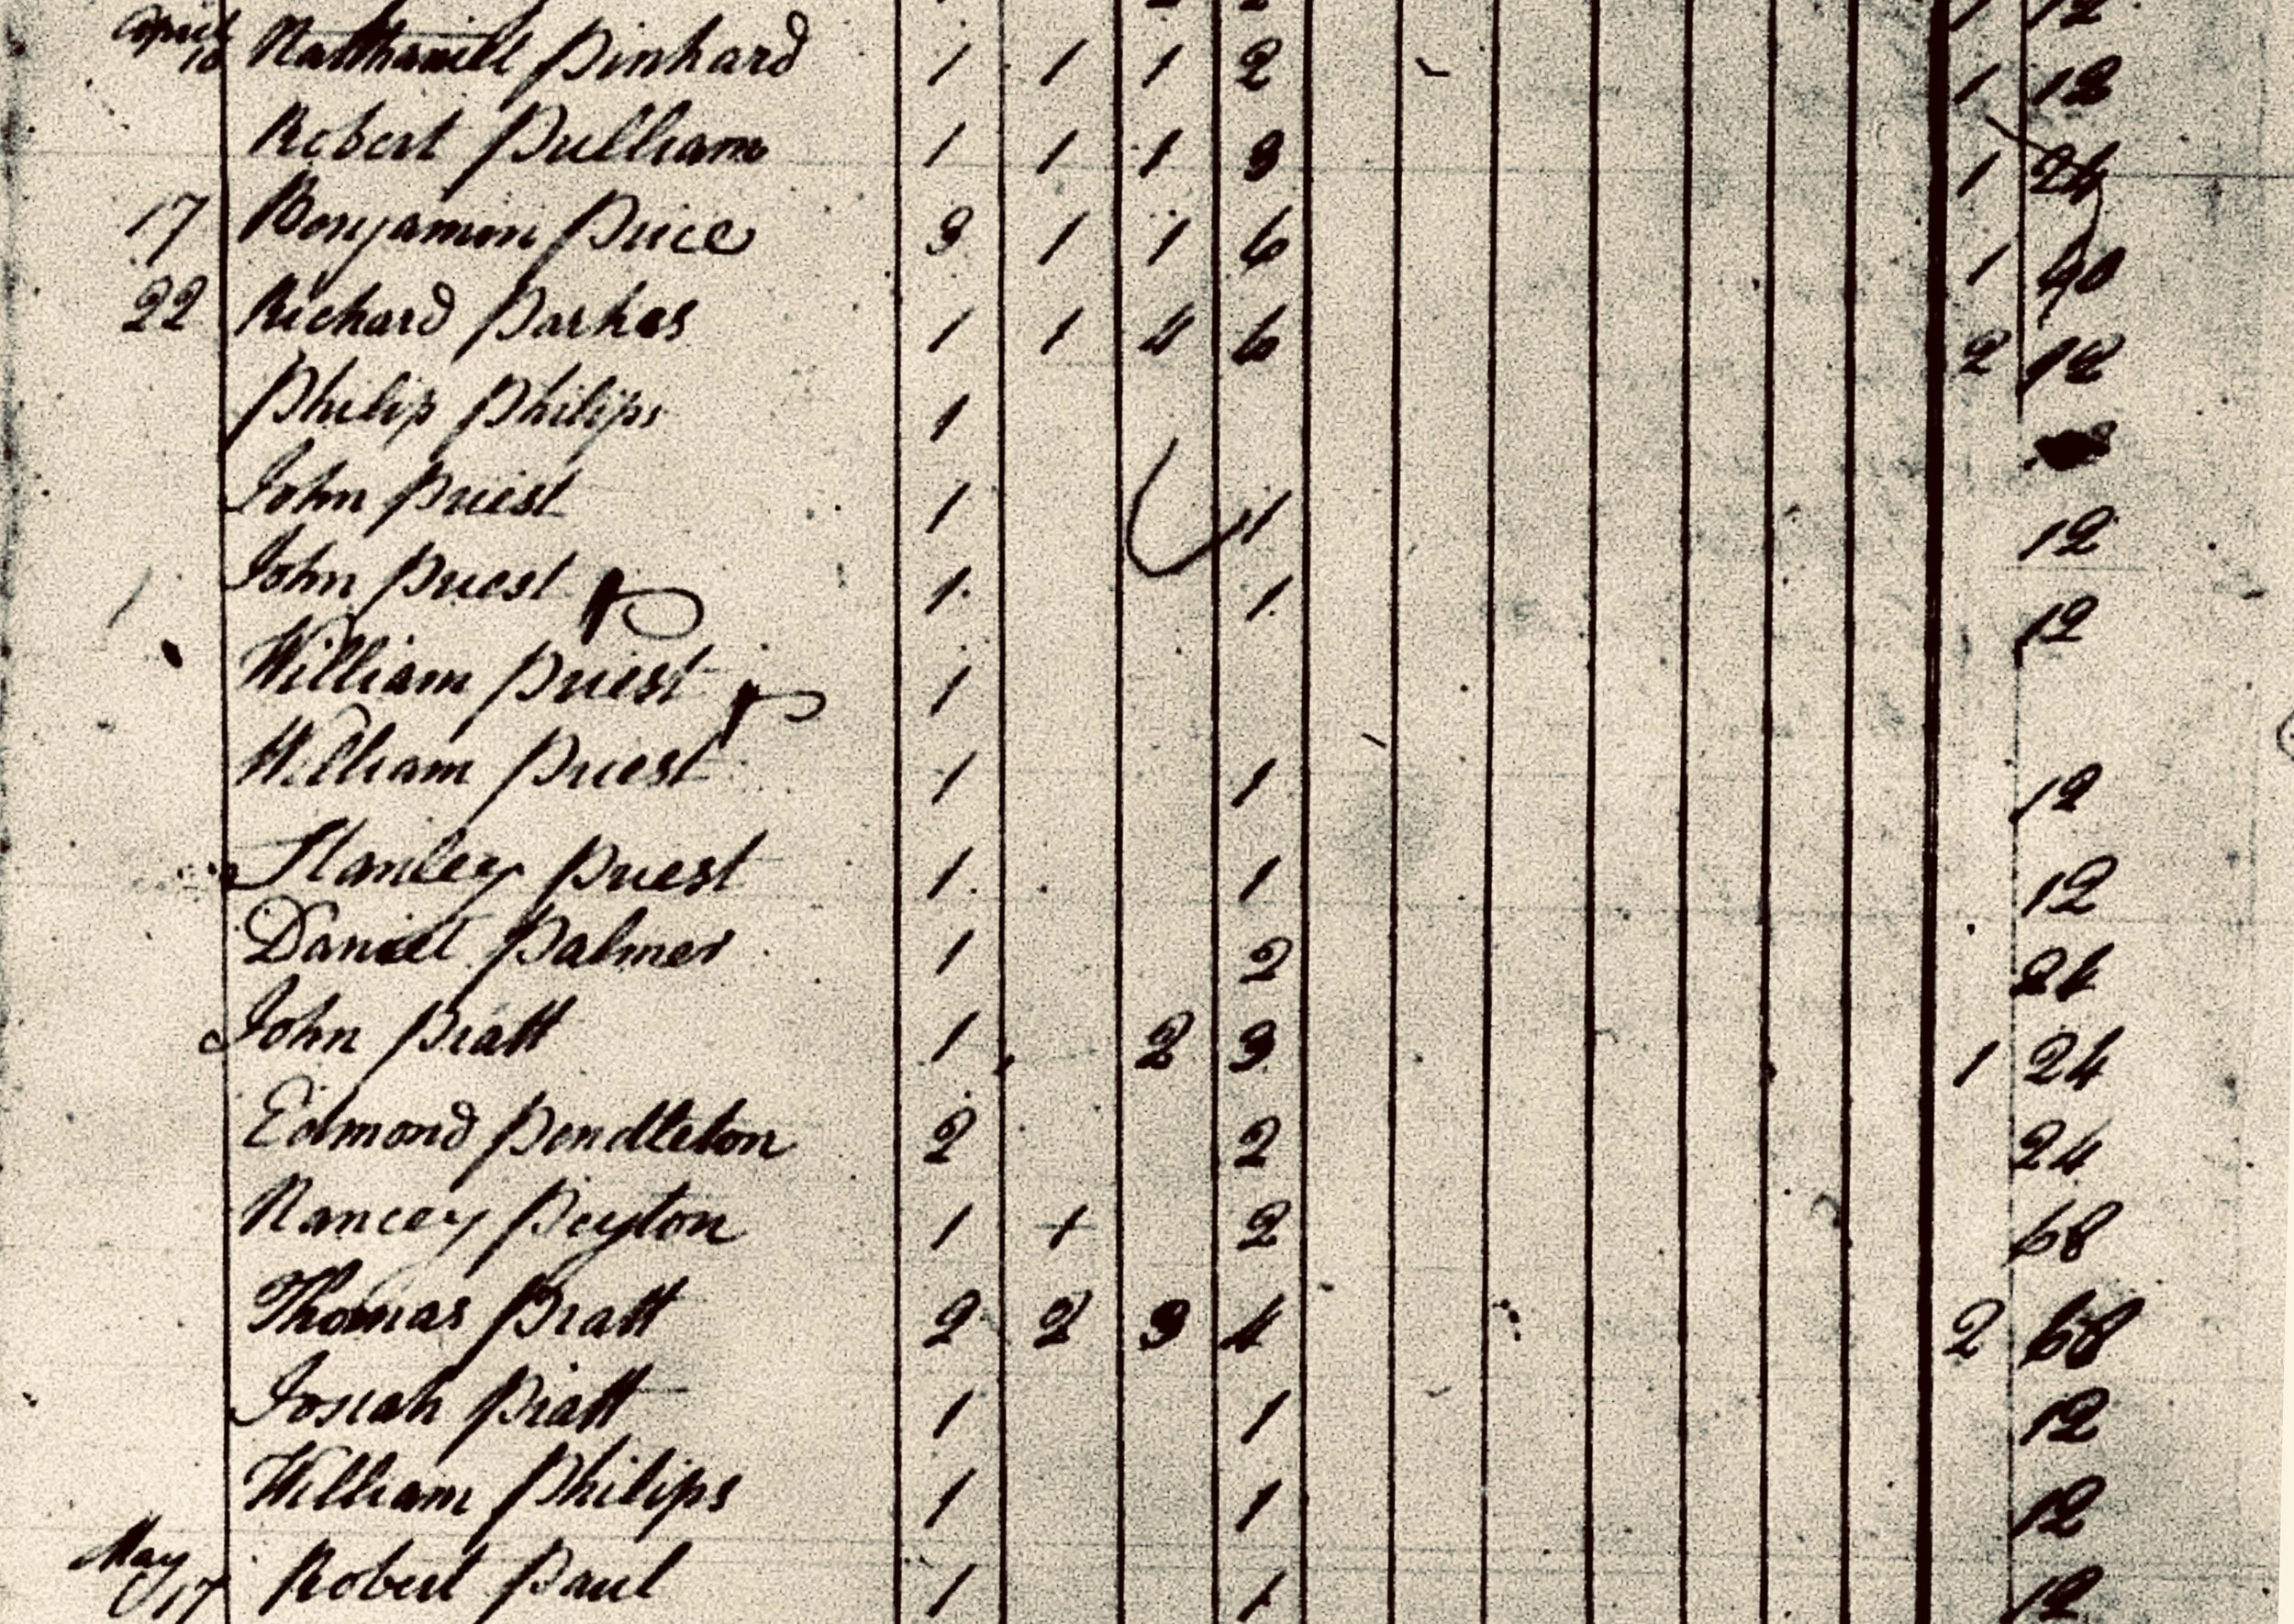 April
10 Natthaniel Pinhard 1 1 1 2 1 12
Robert Pulliam 1 1 1 3 1 24
17 Benjamin Price 3 1 1 6 1 40
22 Richard Parkes 1 1 4 6 2 12
Philip Philips 1
John Priest 1 1 12
John Priest 1 1 12
William Priest 1
William Priest 1 1 12
Stanley Priest 1 1 12
Daniel Palmer 1 2 24
John Pratt 1 2 3 1 24
Edmond Pendleton 2 2 24
Nancey Peyton 1 1 2 68
Thomas Pratt 2 2 3 4 2 68
Josiah Pratt 1 1 12
William Philips 1 1 12
May
17 Robert Paul 1 1 12